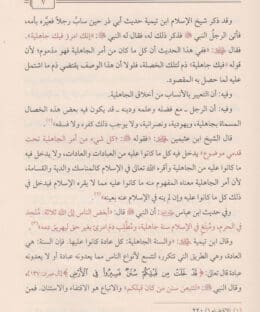 ٧
وقد ذكر شيخ الإسلام ابن تيمية حديث أبي ذر حين سابَّ رجلاً فعيَّره بأمه،
فأتى الرجلُ النبي ﷺ فذكر ذلك له، فقال ﷺ: «إنك امرؤ فيك جاهلية»
فقال: «ففي هذا الحديث أن كل ما كان من أمر الجاهلية فهو مذموم؛ لأن
قوله: «فيك جاهلية» ذمٌّ لتلك الخصلة، فلولا أن هذا الوصف يقتضي ذم ما اشتمل
عليه لما حصل به المقصود.
وفيه: أن التعيير بالأنساب من أخلاق الجاهلية.
وفيه: أن الرجل ـ مع فضله وعلمه ودينه ـ قد يكون فيه بعض هذه الخصال
المسماة بجاهلية، ويهودية، ونصرانية، ولا يوجب ذلك كفره ولا فسقه»
قال شيخ ابن عثيمين: «فقوله ﷺ: «كل شيء من أمر الجاهلية تحت
قدمي موضوع» يدخل فيه كل ما كانوا عليه من العبادات والعادات، ولا يدخل فيه
ما كانوا عليه وأقره الله تعالى في الإسلام كالمناسك والدية والقسامة،
لأن أمر الجاهلية معناه المفهوم منه ما كانوا عليه مما لا يقره الإسلام فيدخل في
ذلك كل ما كانوا عليه وإن لم ينه في الإسلام عنه بعينه»
وفي حديث ابن عباس أن النبي ﷺ قال: «أبغض الناس إلى الله ثلاثة: مُلحد في
الحرم، ومبتغٍ في الإسلام سنة جاهلية، ومُطَّلِب دم امرئ بغير حق ليهريق دمه»
قال ابن تيمية: «والسنة الجاهلية: كل عادة كانوا عليها. فإن السنة: هي
العادة، وهي الطريق التي تتكرر لتتسع لأنواع الناس مما يعدونه عبادة أو لا يعدونه
عبادة قال تعالى: ﴿قَدْ خَلَتْ مِن قَبْلِكُمْ سُنَنٌ فَسِيرُوا فِي الْأَرْضِ﴾ [آل عمران: ١٣٧]،
وقال النبي ﷺ: «لتتبعن سنن من كان قبلكم» والاتباع هو الاقتفاء والاستنان. فمن